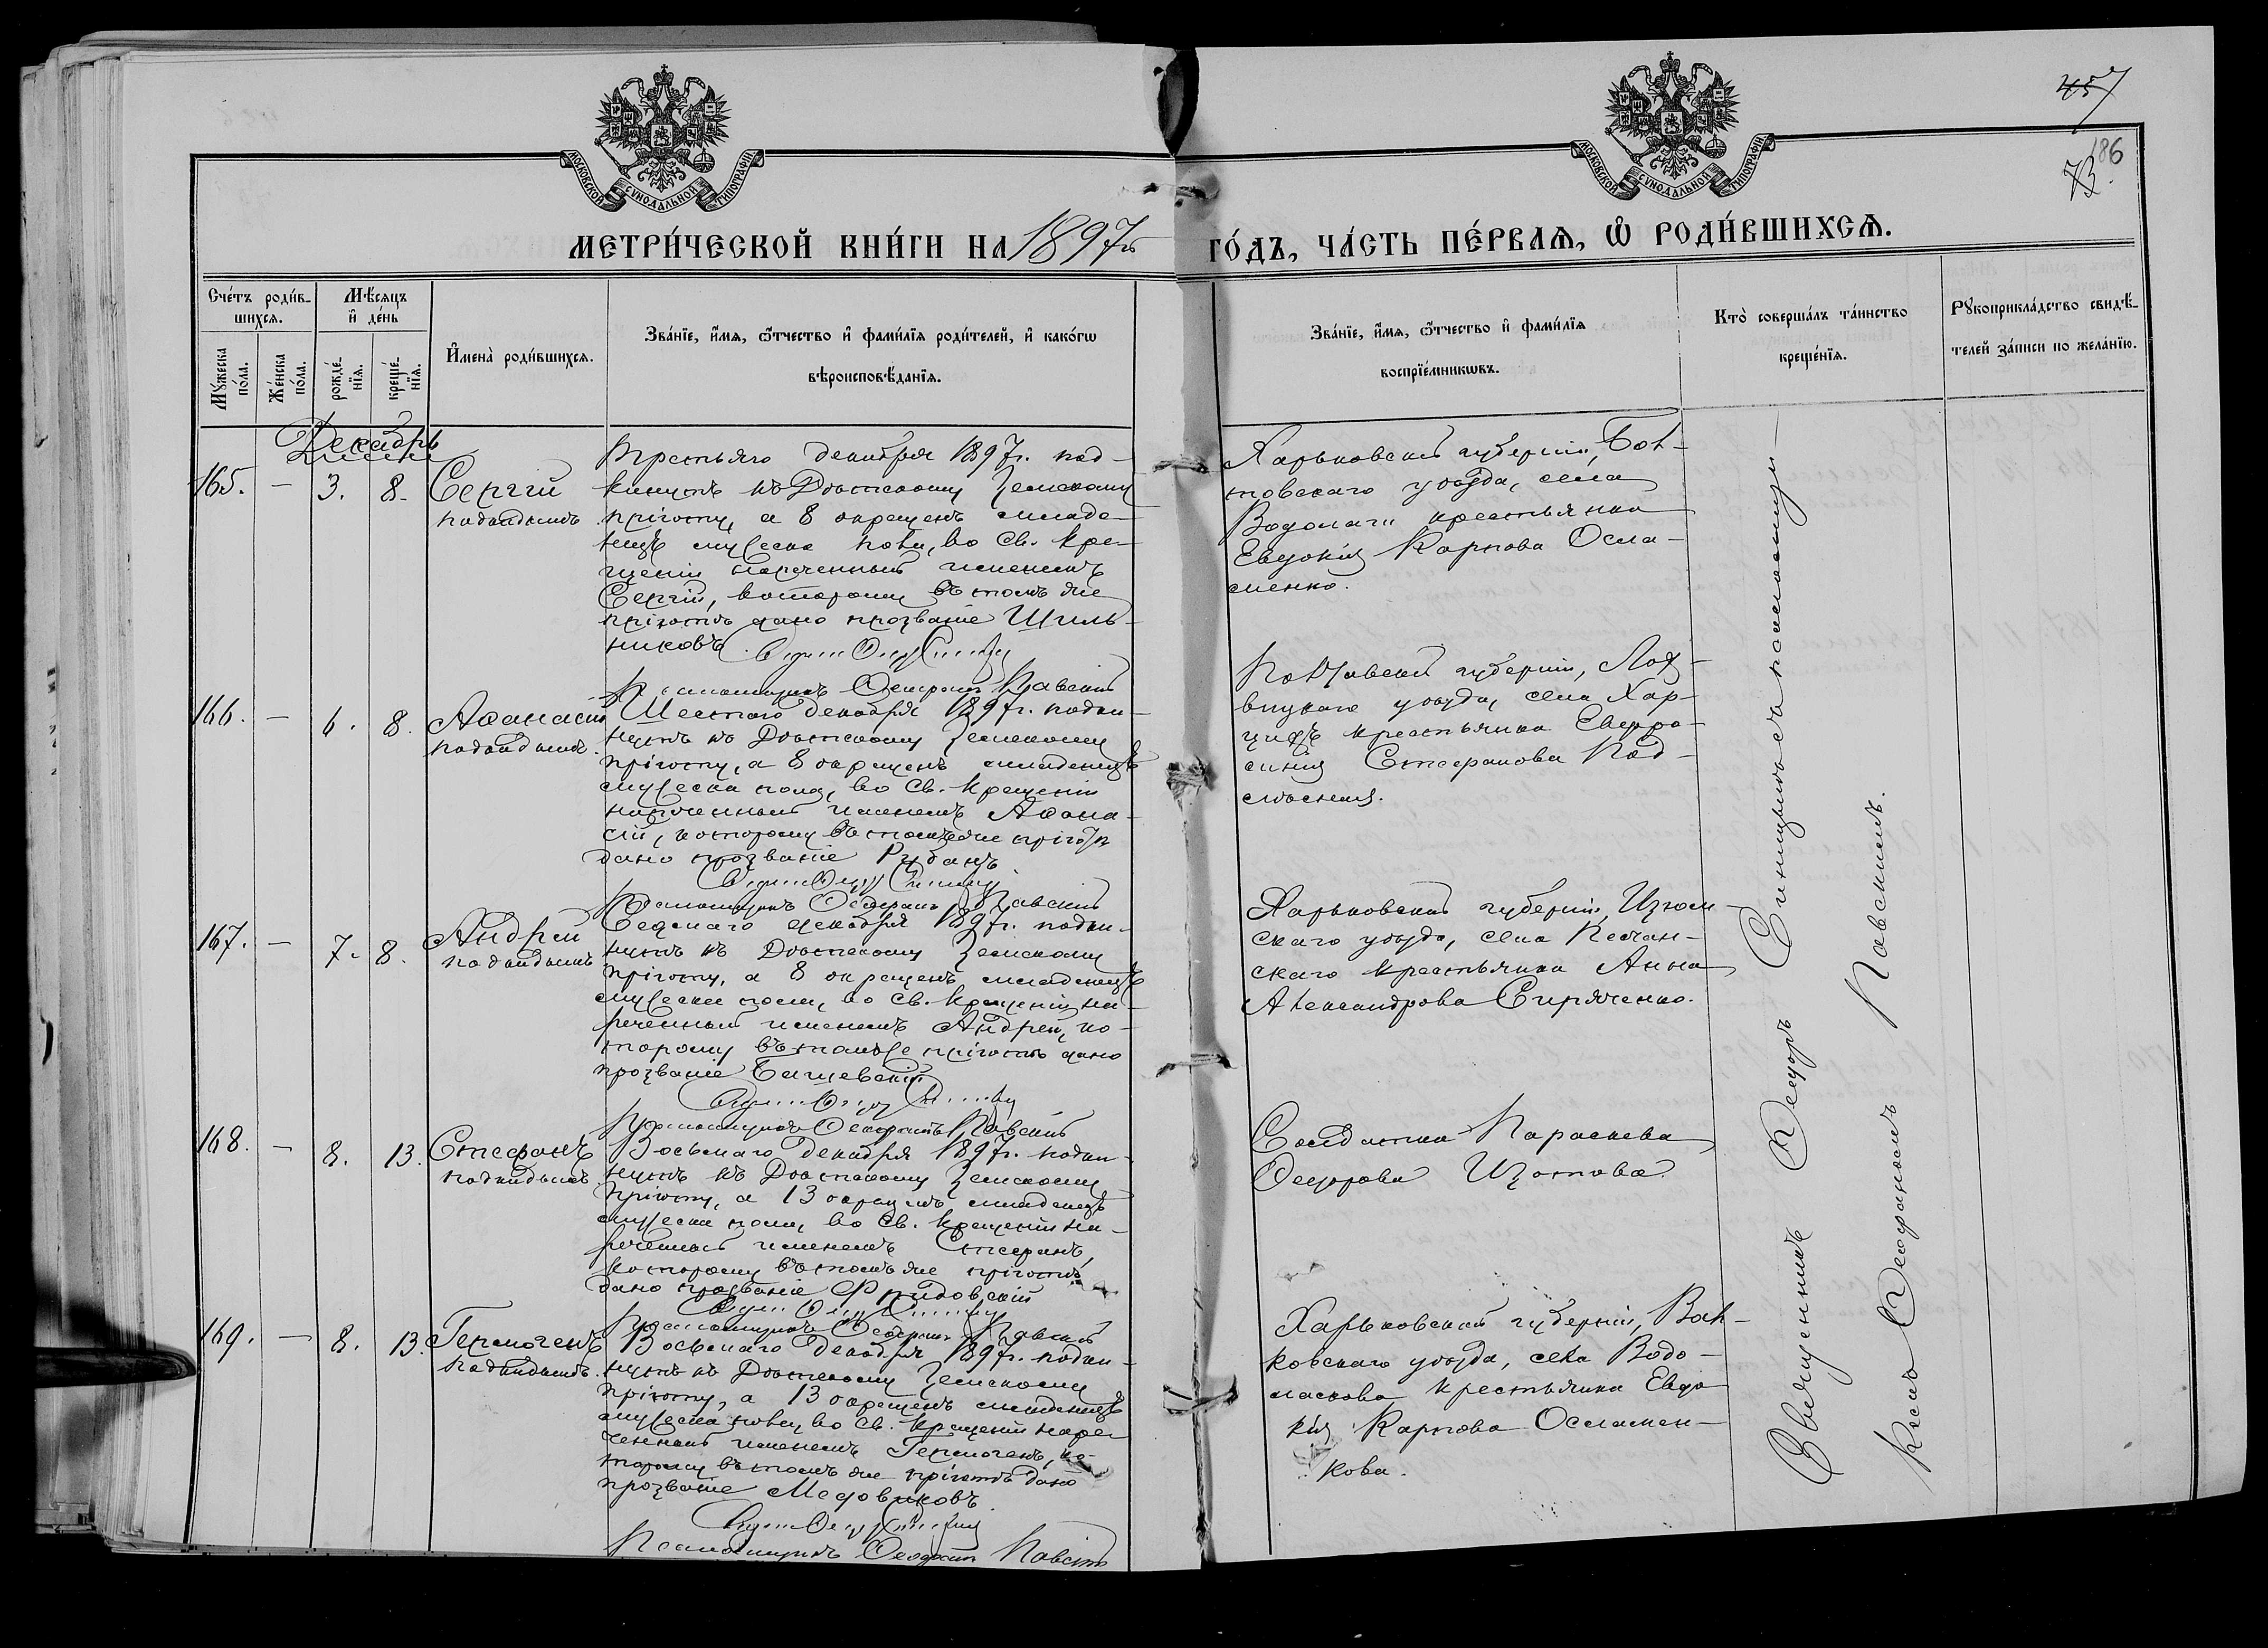 457
186
73.
МОСКОВСКОЙ СѴНОДАЛЬНОЙ ТИПОГРАФІИ
МОСКОВСКОЙ СѴНОДАЛЬНОЙ ТИПОГРАФІИ
МЕТРИ́ЧЕСКОЙ КНИ́ГИ НА 1897 ГО́ДЪ, ЧА́СТЬ ПЕ́РВАЯ, Ѡ РОДИ́ВШИХСЯ.
Сче́тъ роди́в-
шихся.
Мѣ́сяцъ
и҆ де́нь
Мꙋ́жеска по́ла.
Же́нска по́ла.
рожде́-
нїя.
креще́-
нїя.
И҆мена̀ роди́вшихся.
Зва́нїе, и҆́мя, ѻ҆́тчество и҆ фами́лїя роди́телей, и҆ како́гѡ
вѣроисповѣ́данїя.
Зва́нїе, и҆́мя, ѻ҆́тчество и҆ фами́лїя
воспрїе́мникѡвъ.
Кто̀ соверша́лъ та́инство
креще́нїя.
Рꙋкоприкла́дство свидѣ́-
телей за́писи по жела́нїю.
Декабрь
165. — 3. 8. Сергій
подкидышъ
Третьяго декабря 1897 г. под-
кинутъ къ Дѣтскому Земскому
пріюту, а 8 окрещенъ младе-
нецъ мужеска пола, во Св. Кре-
щеніи нареченный именемъ
Сергій, которому въ томъ же
пріютѣ дано прозваніе Шиль-
никовъ.
Псаломщикъ Павскій
Харьковской губерніи,
уѣзда, села
Водолаги крестьянка
Евдокія Карпова Осла-
менко.
166. — 6. 8. Аѳанасій
подкидышъ.
Шестаго декабря 1897 г. подки-
нутъ къ Дѣтскому Земскому
пріюту, а 8 окрещенъ младенецъ
мужеска пола, во Св. Крещеніи
нареченный именемъ Аѳана-
сій, которому въ томъ же пріютѣ
дано прозваніе Рубанъ
Псаломщикъ Павскій
Полтавской губерніи, Лох-
вицкаго уѣзда, села Хар-
цизъ крестьянка Евфро-
синія Стефанова Под-
167. — 7. 8. Андрей
подкидышъ
Седьмаго декабря 1897 г. подки-
нутъ къ Дѣтскому Земскому
пріюту, а 8 окрещенъ младенецъ
мужеска пола, во Св. Крещеніи на-
реченный именемъ Андрей, ко-
торому въ томже пріютѣ дано
прозваніе
Псаломщикъ Павскій
Харьковской губерніи, Изюм-
скаго уѣзда, села Песчан-
скаго крестьянка Анна
Александрова Сиряченко.
168. — 8. 13. Стефанъ
подкидышъ
Восьмаго декабря 1897 г. подки-
нутъ къ Дѣтскому Земскому
пріюту, а 13 окрещенъ младенецъ
мужеска пола, во Св. Крещеніи на-
реченный именемъ Стефанъ,
которому въ томъ же пріютѣ
дано прозваніе
Псаломщикъ Павскій
Солдатка Параскева
Ѳедорова Изотова.
169. — 8. 13. Гермогенъ
подкидышъ.
Восьмаго декабря 1897 г. подки-
нутъ къ Дѣтскому Земскому
пріюту, а 13 окрещенъ младенецъ
мужеска пола, во Св. Крещеніи наре-
ченный именемъ Гермогенъ, ко-
торому въ томъ же пріютѣ дано
прозваніе Медовиковъ.
Псаломщикъ Павскій
Харьковской губерніи, Вал-
ковскаго уѣзда, села Водо-
ласкова крестьянка Евдо-
кія Карпова Осламен-
кова.
Священникъ Ѳеодоръ съ псаломщи-
комъ Павскимъ.